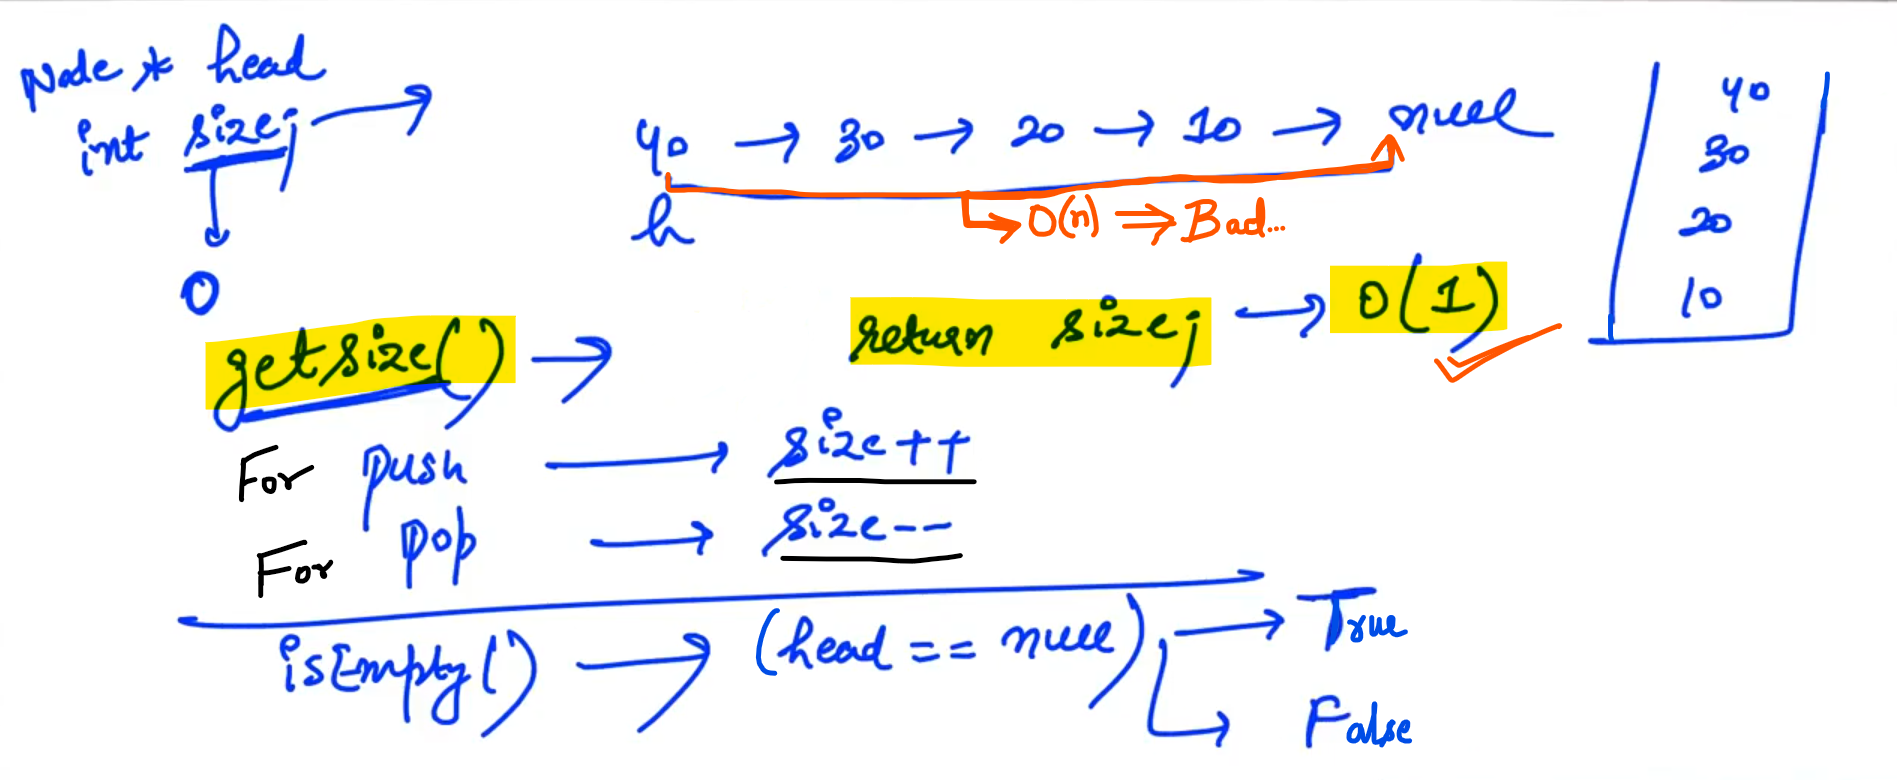 Node * head
int size; →
40 → 30 → 20 → 10 → null
h
→ O(n) ⇒ Bad...
40
30
20
10
0
getsize() → return size; → O(1)
For push → size++
For pop → size--
isEmpty() → (head == null) → True
→ False